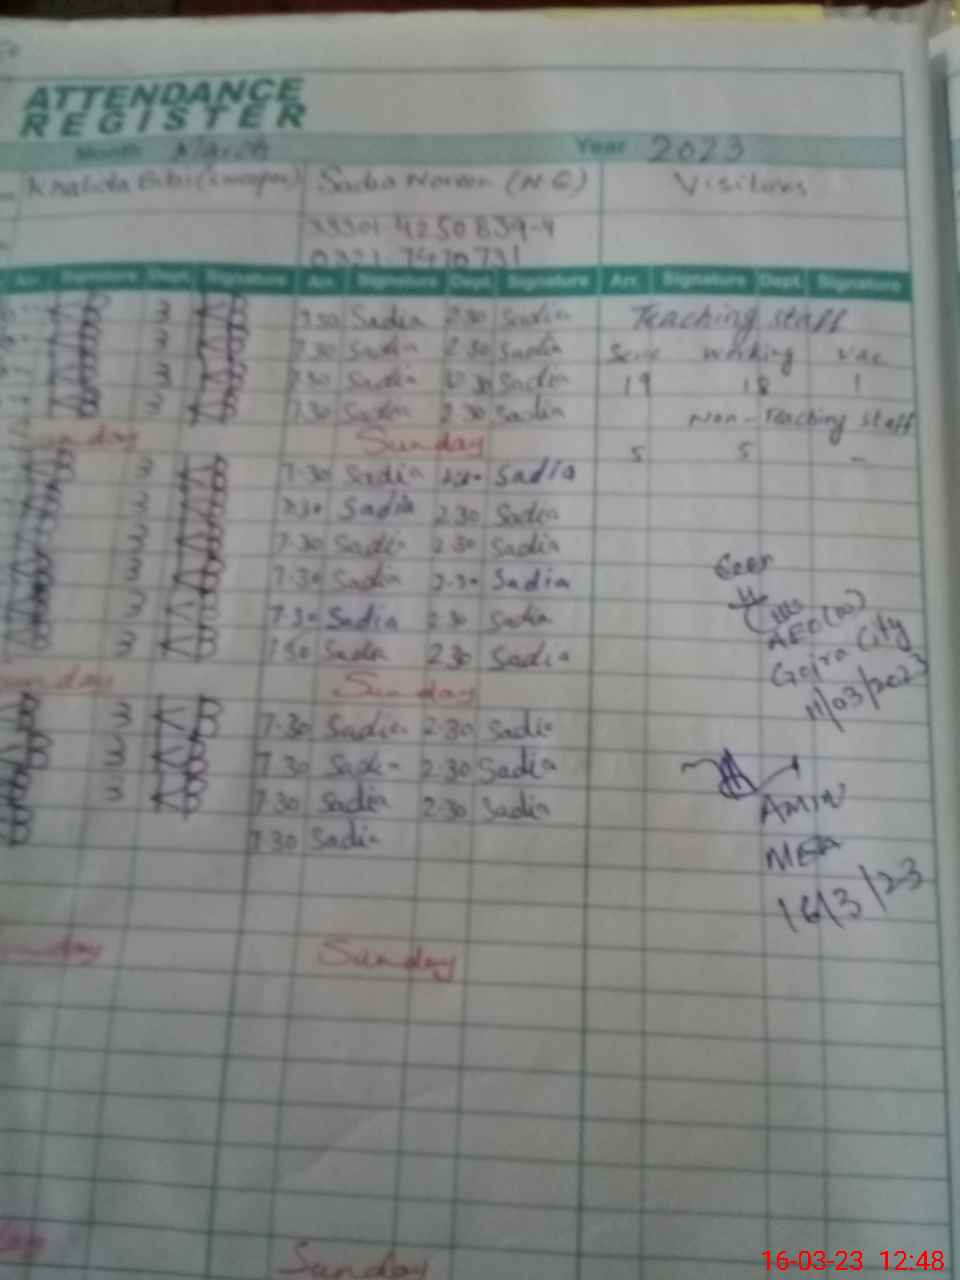 ATTENDANCE
REGISTER
Month March Year 2023
Khalida Bibi (Sweeper) Sadia (N.Q) Visitors
33301-4250839-4
0321-7470731
Arr. Signature Dept. Signature Arr. Signature Dept. Signature Arr. Signature Dept. Signature
3 7.30 Sadia 2.30 Sadia Teaching staff
3 7.30 Sadia 2.30 Sadia working Vac
3 7.30 Sadia 2.30 Sadia 19 18 1
3 7.30 Sadia 2.30 Sadia Non-Teaching staff
Sunday Sunday 5 5 -
3 7.30 Sadia 2.30 Sadia
3 7.30 Sadia 2.30 Sadia
3 7.30 Sadia 2.30 Sadia
3 7.30 Sadia 2.30 Sadia
3 7.30 Sadia 2.30 Sadia
3 7.30 Sadia 2.30 Sadia
Sunday Sunday
Seen
AEO (W)
Gojra City
11/03/2023
3 7.30 Sadia 2.30 Sadia
3 7.30 Sadia 2.30 Sadia
3 7.30 Sadia 2.30 Sadia
7.30 Sadia
AMIN
MEA
16/3/23
Sunday Sunday
Sunday
16-03-23 12:48